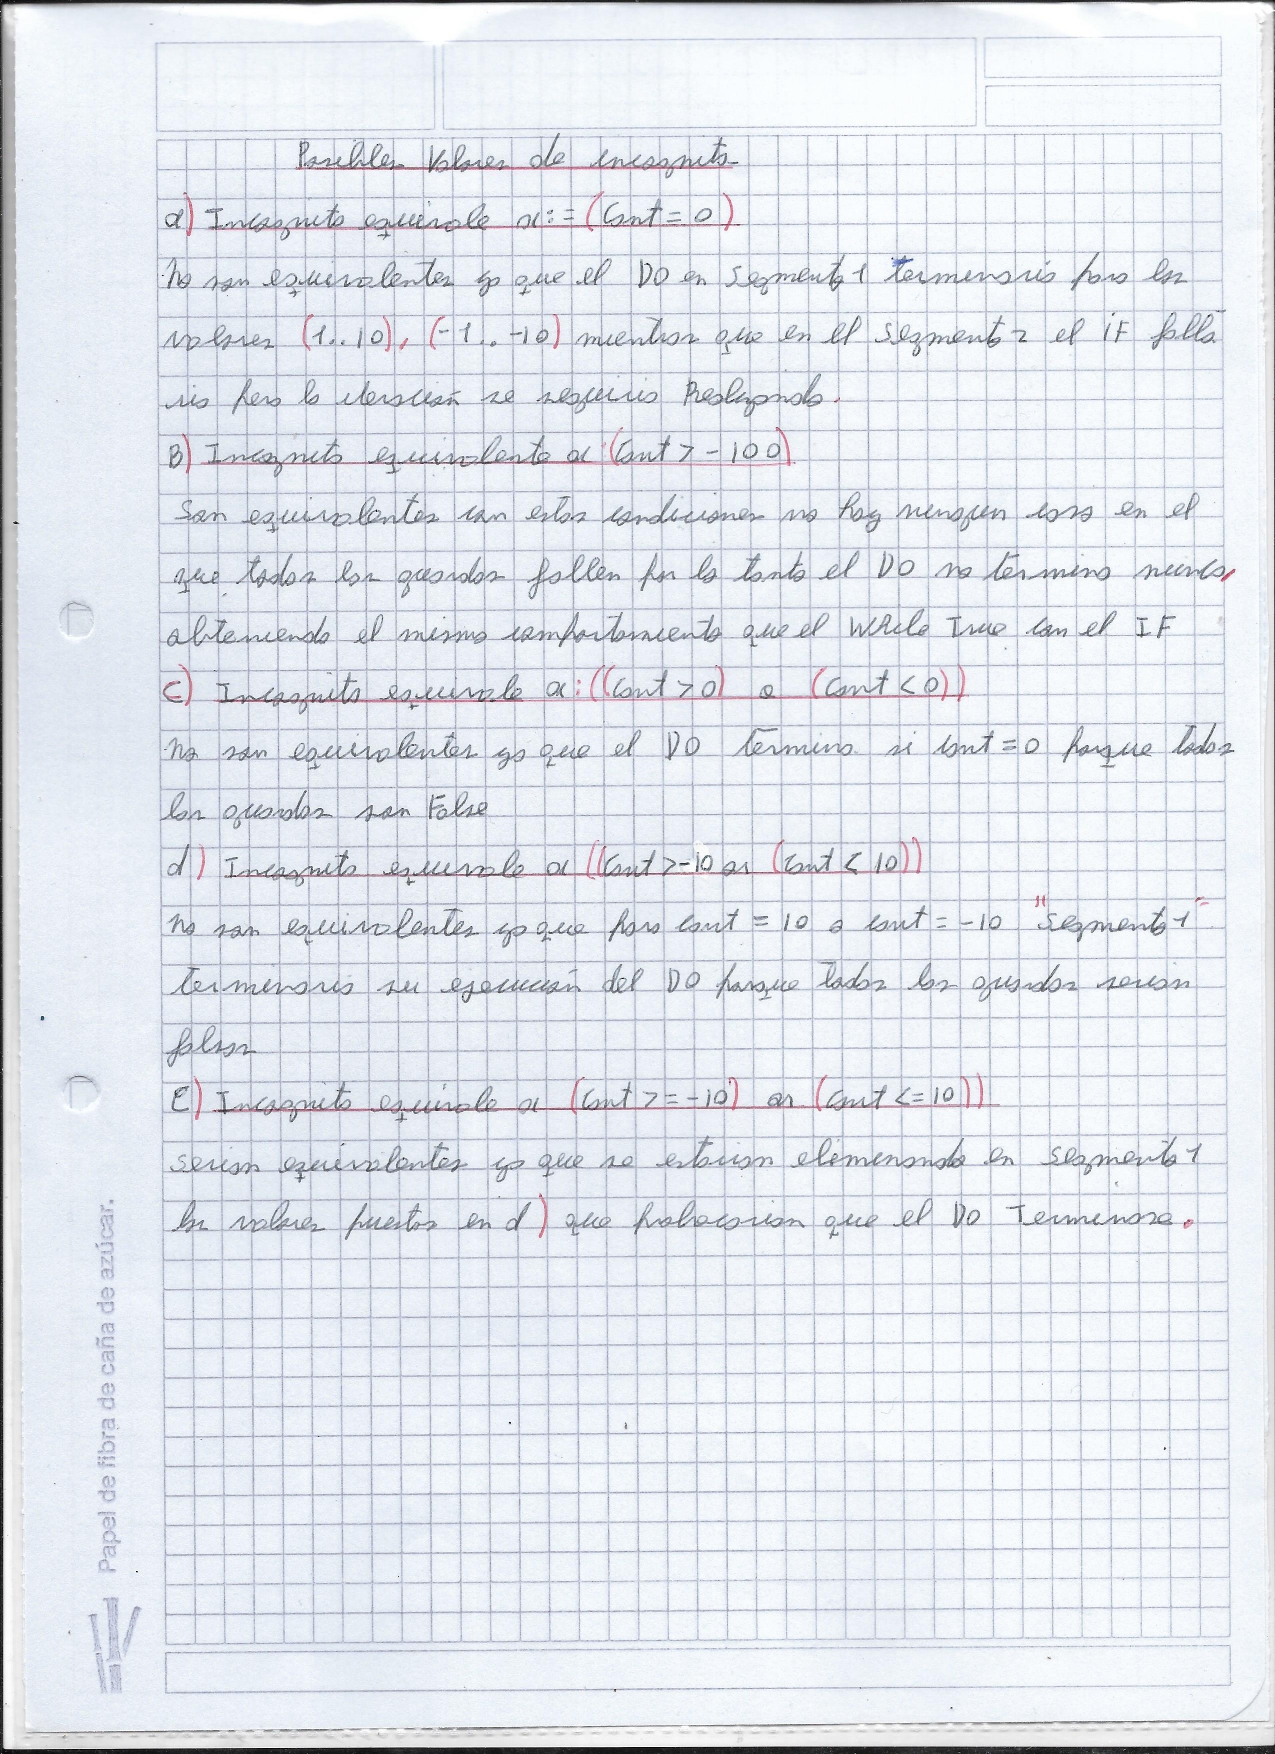 Posibles Valores de incognita
a) Incognita equivale a := (Cant = 0)
No son equivalentes ya que el DO en Segmento 1 terminaria para los
valores (1..10), (-1..-10) mientras que en el Segmento 2 el IF falla
ria pero la iteración se seguiria Realizando.
B) Incognita equivalente a (Cant > -100)
Son equivalentes con estas condiciones no hay ningun caso en el
que todas las guardas fallen por lo tanto el DO no termina nunca,
obteniendo el mismo comportamiento que el While True con el IF
C) Incognita equivale a: ((Cant > 0) o (Cant < 0))
No son equivalentes ya que el DO termina si cant = 0 porque todas
las guardas son False
d) Incognita equivale a ((Cant > -10 or (cant < 10))
No son equivalentes ya que para cant = 10 o cant = -10 "Segmento 1"
terminaria su ejecución del DO porque todas las guardas serian
falsas
E) Incognita equivale a (Cant >= -10) or (cant <= 10))
serian equivalentes ya que se estarian eliminando en segmento 1
los valores puestos en d) que probocarian que el DO Terminase.
Papel de fibra de caña de azúcar.